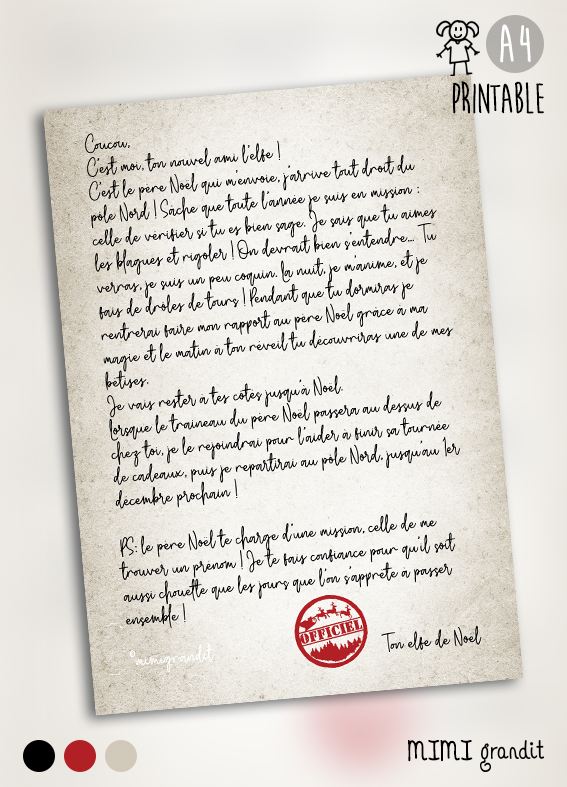 A4
PRINTABLE
Coucou,
C'est moi, ton nouvel ami l'elfe !
C'est le père Noël qui m'envoie, j'arrive tout droit du
pôle Nord ! Sache que toute l'année je suis en mission :
celle de vérifier si tu es bien sage. Je sais que tu aimes
les blagues et rigoler ! On devrait bien s'entendre... Tu
verras, je suis un peu coquin. La nuit, je m'anime, et je
fais de drôles de tours ! Pendant que tu dormiras je
rentrerai faire mon rapport au père Noël grâce à ma
magie et le matin à ton réveil tu découvriras une de mes
bêtises.
Je vais rester à tes côtés jusqu'à Noël.
Lorsque le traineau du père Noël passera au dessus de
chez toi, je le rejoindrai pour l'aider à finir sa tournée
de cadeaux, puis je repartirai au pôle Nord, jusqu'au 1er
décembre prochain !
PS: le père Noël te charge d'une mission, celle de me
trouver un prénom ! Je te fais confiance pour qu'il soit
aussi chouette que les jours que l'on s'apprête à passer
ensemble !
OFFICIEL
Ton elfe de Noël
©mimigrandit
MIMI grandit